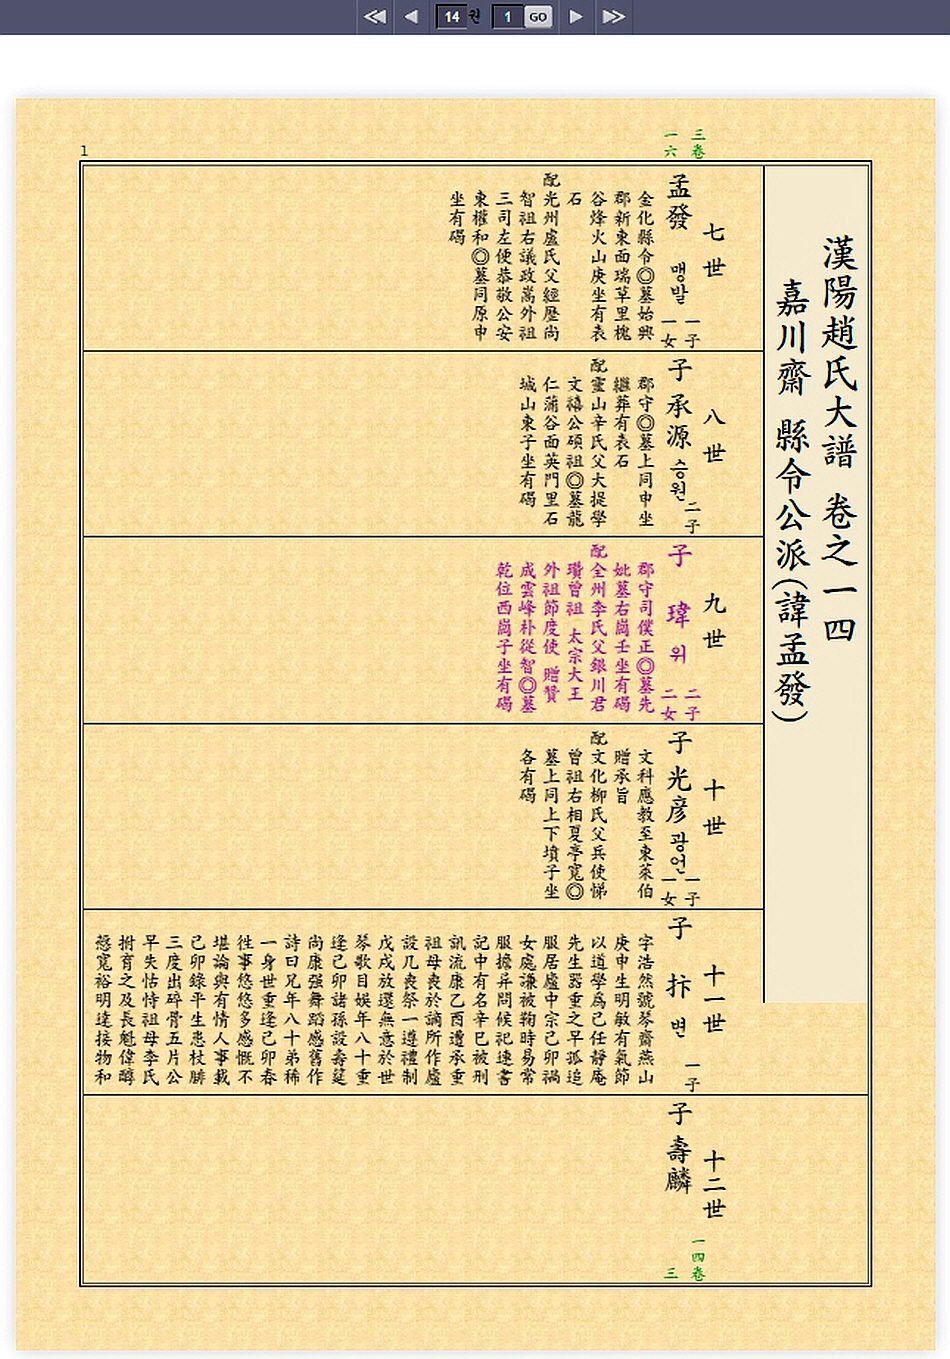 14 권 1 GO
1
三卷
一六
漢陽趙氏大譜 卷之一四
嘉川齋 縣令公派(諱孟發)
七世
孟發 맹발 一子
一女
金化縣令◎墓始興
郡新東面瑞草里槐
谷烽火山庚坐有表
石
配光州盧氏父經歷尚
智祖右議政嵩外祖
三司左使恭敬公安
東權和◎墓同原申
坐有碣
八世
子承源 승원 二子
郡守◎墓上同申坐
繼葬有表石
配靈山辛氏父大提學
文禧公碩祖◎墓龍
仁蒲谷面英門里石
城山東子坐有碣
九世
子 瑋 위 二子
二女
郡守司僕正◎墓先
妣墓右崗壬坐有碣
配全州李氏父銀川君
瓚曾祖 太宗大王
外祖節度使 贈贊
成雲峰朴從智◎墓
乾位西崗子坐有碣
十世
子光彦 광언 一子
一女
文科應教至東萊伯
贈承旨
配文化柳氏父兵使悌
曾祖右相夏亭寬◎
墓上同上下墳子坐
各有碣
十一世
子 抃 변 一子
字浩然號琴齋燕山
庚申生明敏有氣節
以道學爲己任靜庵
先生器重之早孤追
服居廬中宗己卯禍
女處謙被鞫時易常
服擔并問候祀連書
記中有名辛巳被刑
訊流康乙酉遭承重
祖母喪於謫所作廬
設几喪祭一遵禮制
戊戌放還無意於世
琴歌目娛年八十重
逢己卯諸孫設壽筵
尚康强舞蹈感舊作
詩曰兄年八十弟稀
一身世重逢己卯春
徃事悠悠多感慨不
堪論與有情人事載
己卯錄平生患杖腓
三度出碎骨五片公
早失怙恃祖母李氏
拊育之及長魁偉醇
慤寬裕明達接物和
十二世
子壽麟
一四卷
三